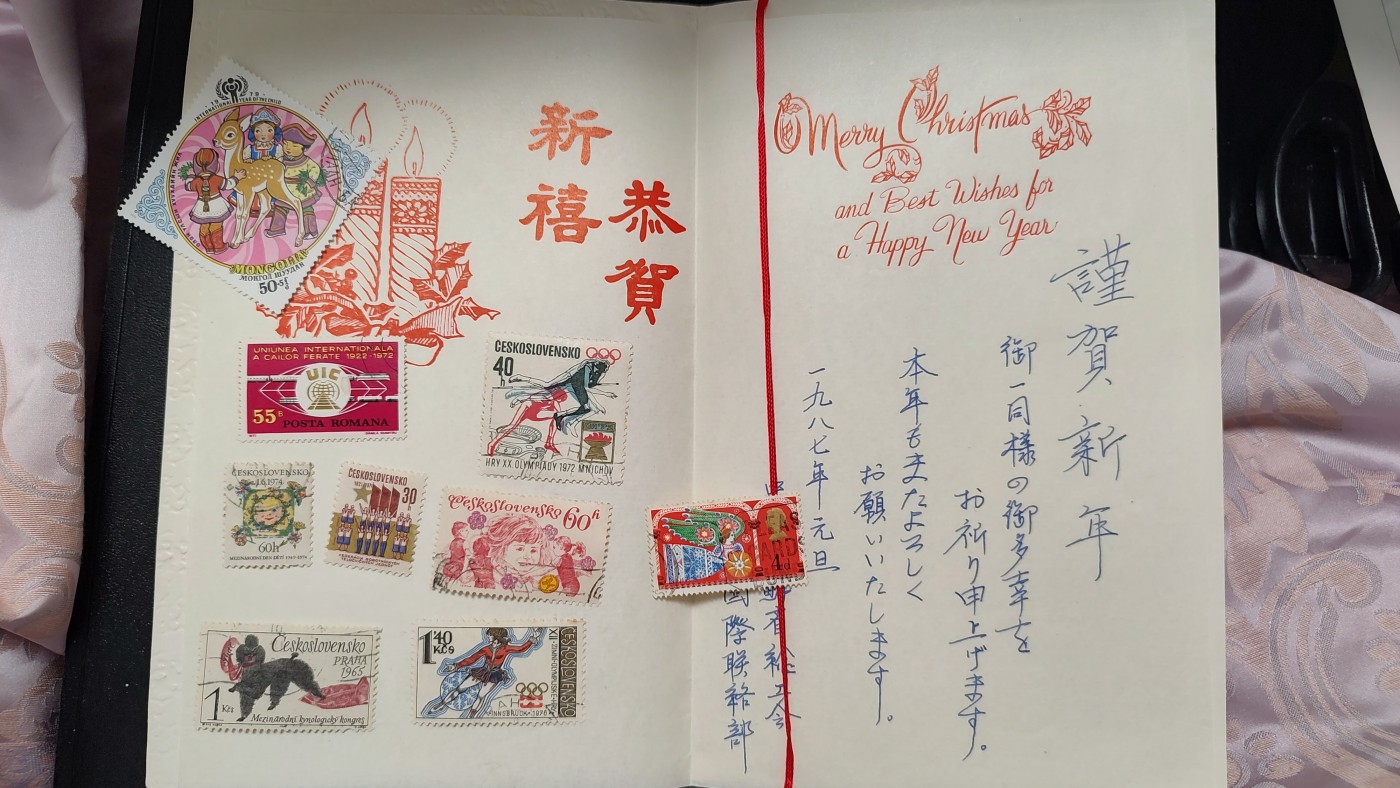 INTERNATIONAL YEAR OF THE CHILD
1979
MONGOLIA
МОНГОЛ ШУУДАН
50+5
新禧
恭賀
UNIUNEA INTERNATIONALA
A CAILOR FERATE 1922-1972
UIC
55B
POSTA ROMANA
ČESKOSLOVENSKO
40
HRY XX. OLYMPIÁDY 1972 MNICHOV
ČESKOSLOVENSKO
1.6.1974
60h
MEZINÁRODNÍ DEN DĚTÍ 1949-1974
ČESKOSLOVENSKO
30h
Československo 60h
Československo
PRAHA
1965
1 Kčs
Mezinárodní kynologický kongres
1.40
Kčs
ČESKOSLOVENSKO
XII. ZIMNÍ OLYMPIJSKÉ HRY
INNSBRUCK 1976
Merry Christmas
and Best Wishes for
a Happy New Year
謹賀新年
御一同様の御多幸を
お祈り申上げます。
本年もまたよろしく
お願いいたします。
一九八七年元旦
省総工会
國際联絡部
4d